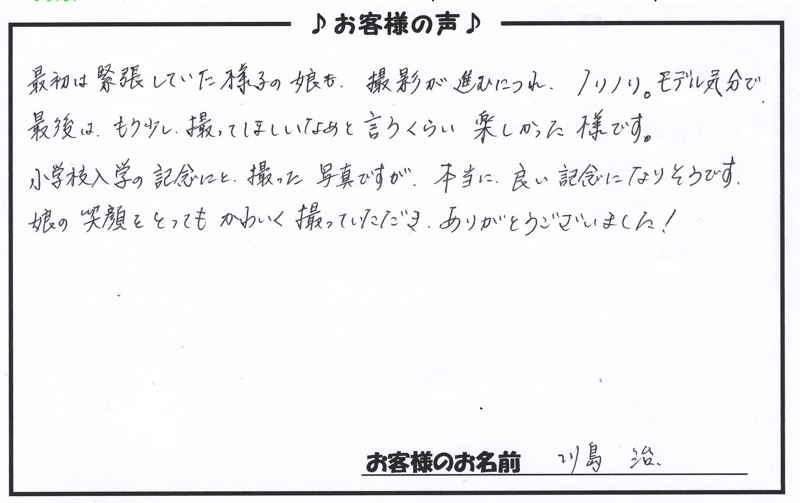 ♪お客様の声♪
最初は緊張していた様子の娘も、撮影が進むにつれ、ノリノリ。モデル気分で、
最後は、もう少し、撮ってほしいなぁと言うくらい楽しかった様です。
小学校入学の記念にと、撮った写真ですが、本当に、良い記念になりそうです。
娘の笑顔をとってもかわいく撮っていただき、ありがとうございました！
お客様のお名前 川島 治